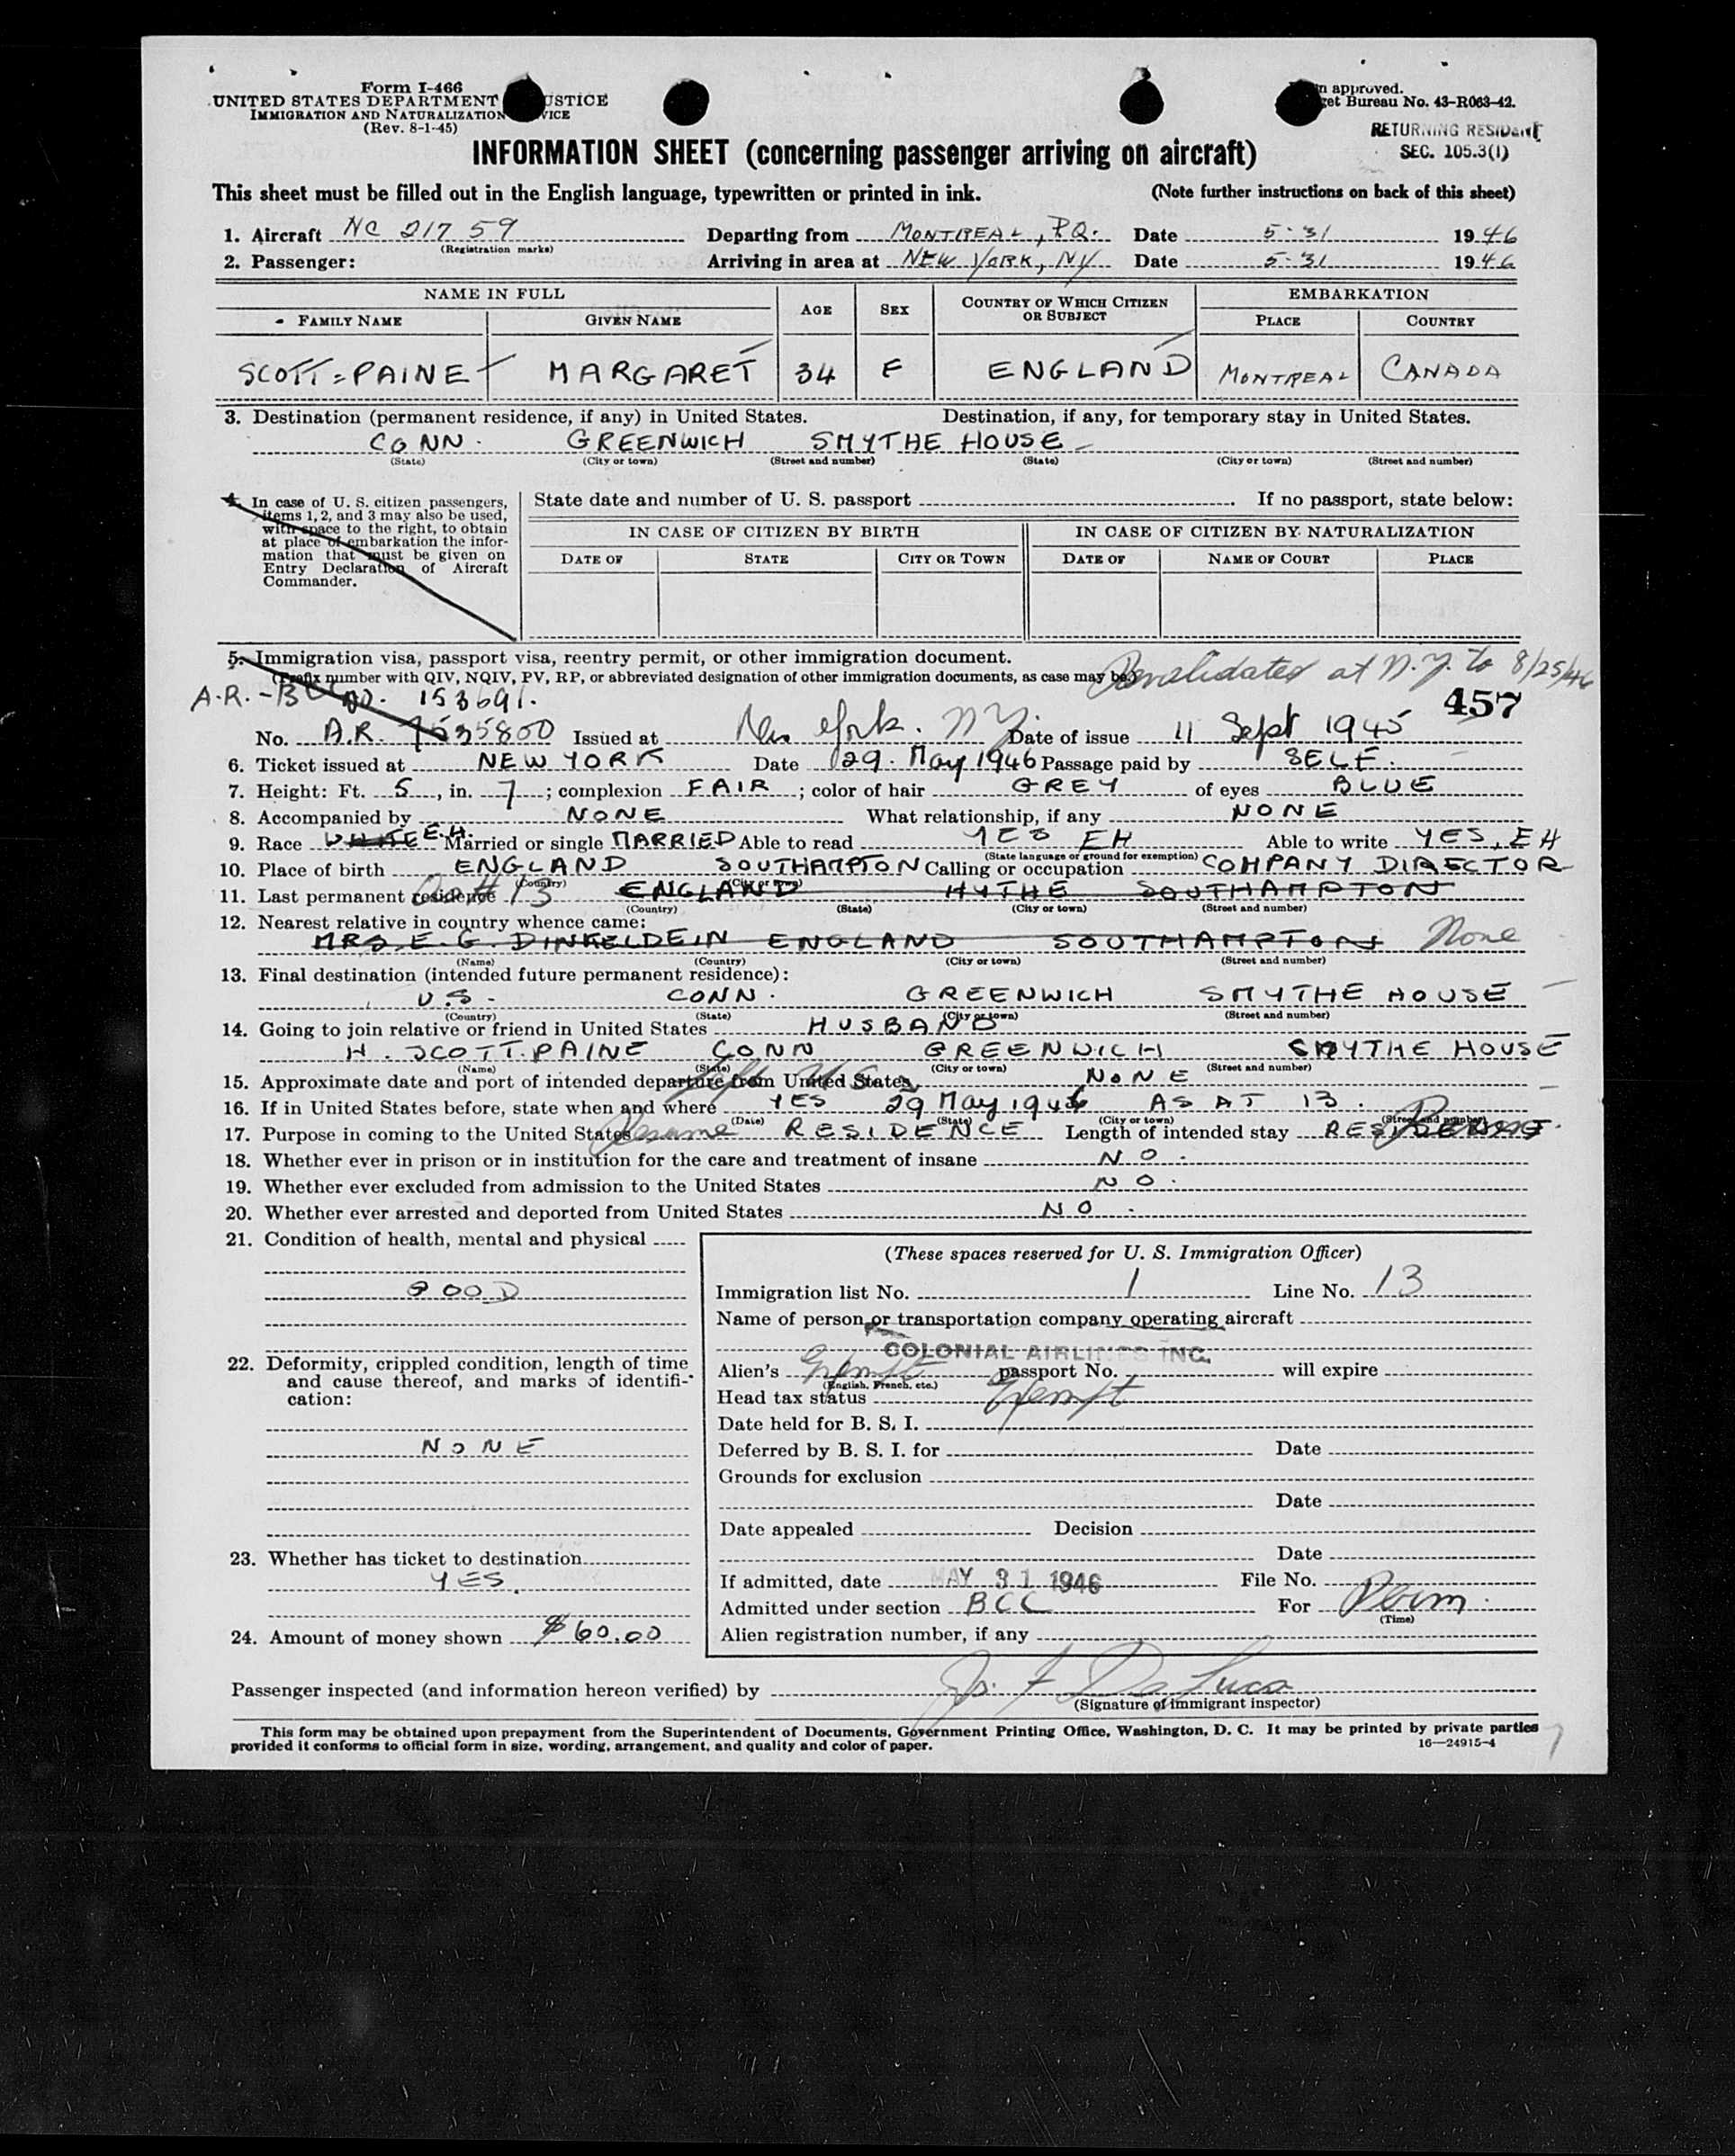 Form I-466
UNITED STATES DEPARTMENT USTICE
IMMIGRATION AND NATURALIZATION VICE
(Rev. 8-1-45)
n approved.
et Bureau No. 43-R063-42.
RETURNING RESIDENT
SEC. 105.3(1)
INFORMATION SHEET (concerning passenger arriving on aircraft)
This sheet must be filled out in the English language, typewritten or printed in ink. (Note further instructions on back of this sheet)
1. Aircraft NC 21759 Departing from MONTREAL, P.Q. Date 5-31 1946
(Registration marks)
2. Passenger: Arriving in area at NEW YORK, NY Date 5-31 1946
NAME IN FULL AGE SEX COUNTRY OF WHICH CITIZEN OR SUBJECT EMBARKATION
FAMILY NAME GIVEN NAME PLACE COUNTRY
SCOTT=PAINE MARGARET 34 F ENGLAND MONTREAL CANADA
3. Destination (permanent residence, if any) in United States. Destination, if any, for temporary stay in United States.
CONN. GREENWICH SMYTHE HOUSE
(State) (City or town) (Street and number) (State) (City or town) (Street and number)
4. In case of U. S. citizen passengers,
items 1, 2, and 3 may also be used,
with space to the right, to obtain
at place of embarkation the infor-
mation that must be given on
Entry Declaration of Aircraft
Commander.
State date and number of U. S. passport . If no passport, state below:
IN CASE OF CITIZEN BY BIRTH IN CASE OF CITIZEN BY NATURALIZATION
DATE OF STATE CITY OR TOWN DATE OF NAME OF COURT PLACE
5. Immigration visa, passport visa, reentry permit, or other immigration document.
(Prefix number with QIV, NQIV, PV, RP, or abbreviated designation of other immigration documents, as case may be.)
Revalidated at N.Y. to 8/25/46
A.R.-BCC NO. 153691. 457
No. A.R. 7535800 Issued at New York. NY. Date of issue 11 Sept 1945
6. Ticket issued at NEW YORK Date 29. May 1946 Passage paid by SELF.
7. Height: Ft. 5, in. 7; complexion FAIR; color of hair GREY of eyes BLUE
8. Accompanied by NONE What relationship, if any NONE
9. Race WHITE E.H. Married or single MARRIED Able to read YES EH Able to write YES, EH
(State language or ground for exemption)
10. Place of birth ENGLAND SOUTHAMPTON Calling or occupation COMPANY DIRECTOR
(Country) (City or town)
11. Last permanent residence 13 ENGLAND HYTHE SOUTHAMPTON
(Country) (State) (City or town) (Street and number)
12. Nearest relative in country whence came:
MRS. E. G. DINKELDEIN ENGLAND SOUTHAMPTON None
(Name) (Country) (City or town) (Street and number)
13. Final destination (intended future permanent residence):
U.S. CONN. GREENWICH SMYTHE HOUSE
(Country) (State) (City or town) (Street and number)
14. Going to join relative or friend in United States HUSBAND
H. SCOTT.PAINE CONN GREENWICH SMYTHE HOUSE
(Name) (State) (City or town) (Street and number)
15. Approximate date and port of intended departure from United States NONE
Left U.S.
16. If in United States before, state when and where YES 29 May 1946 AS AT 13.
(Date) (State) (City or town) (Street and number)
17. Purpose in coming to the United States Resume RESIDENCE Length of intended stay
18. Whether ever in prison or in institution for the care and treatment of insane NO.
19. Whether ever excluded from admission to the United States NO.
20. Whether ever arrested and deported from United States NO.
21. Condition of health, mental and physical
GOOD
22. Deformity, crippled condition, length of time
and cause thereof, and marks of identifi-
cation:
NONE
23. Whether has ticket to destination
YES.
24. Amount of money shown $60.00
(These spaces reserved for U. S. Immigration Officer)
Immigration list No. 1 Line No. 13
Name of person or transportation company operating aircraft
COLONIAL AIRLINES INC.
Alien's Exempt passport No. will expire
(English, French, etc.)
Head tax status Exempt
Date held for B. S. I.
Deferred by B. S. I. for Date
Grounds for exclusion
Date
Date appealed Decision
Date
If admitted, date MAY 31 1946 File No.
Admitted under section BCC For Perm.
(Time)
Alien registration number, if any
Passenger inspected (and information hereon verified) by Jos. F. DeLuca
(Signature of immigrant inspector)
This form may be obtained upon prepayment from the Superintendent of Documents, Government Printing Office, Washington, D. C. It may be printed by private parties
provided it conforms to official form in size, wording, arrangement, and quality and color of paper. 16—24915-4